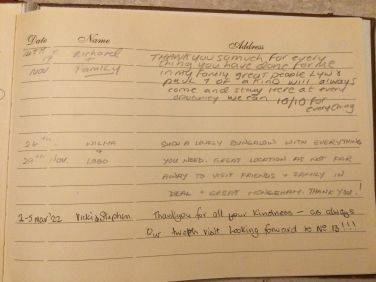 Date Name Address
Richard THANK YOU SO much for every
+ thing you have done for me
NOV Family in my family great people Lyn &
Paul 7 of a kind will always
come and stay Here at every
opportunity we can 10/10 for
everything
26th WILMA SUCH A LOVELY BUNGALOW WITH EVERYTHING
+
29th Nov. LOBO YOU NEED. GREAT LOCATION AS NOT FAR
AWAY TO VISIT FRIENDS + FAMILY IN
DEAL + GREAT MONGEHAM. THANK YOU!
1-5 Mar '22 Vicki & Stephen Thankyou for all your kindness - as always
Our twelfth visit. Looking forward to No 13!!!